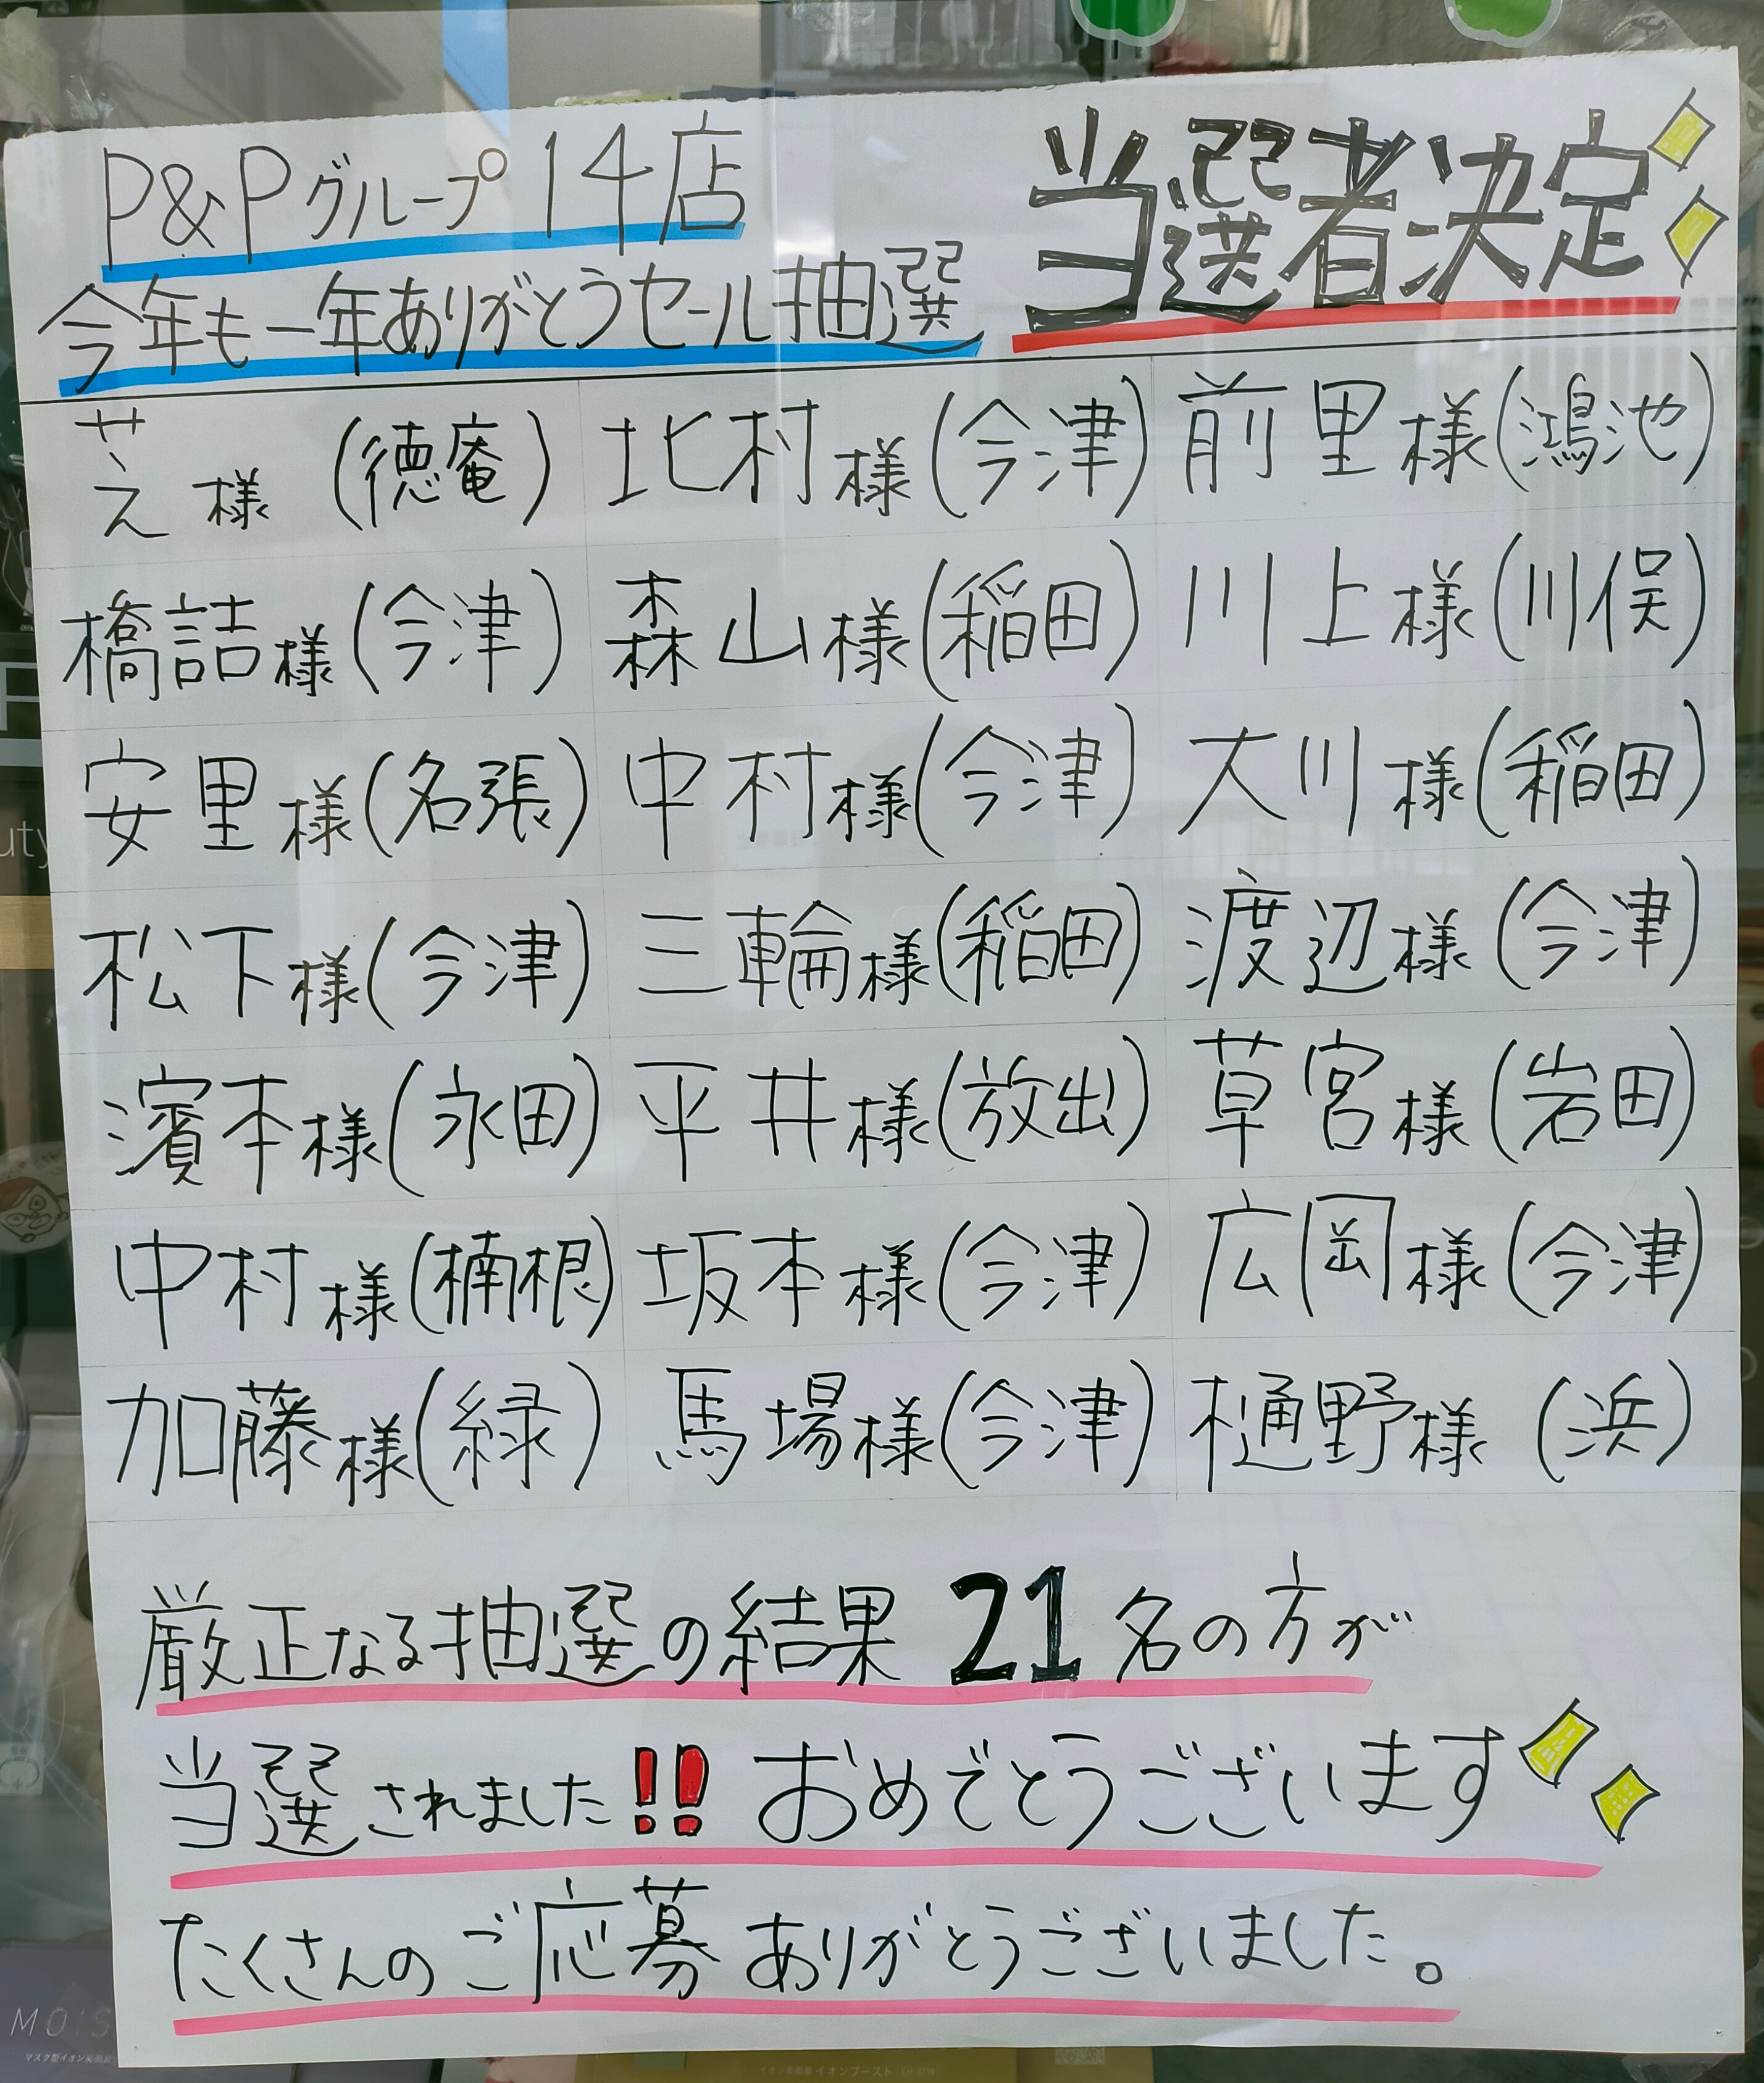 P&Pグループ14店
今年も一年ありがとうセール抽選
当選者決定
芝様 (徳庵) 北村様(今津) 前里様(鴻池)
橋詰様(今津) 森山様(稲田) 川上様(川俣)
安里様(名張) 中村様(今津) 大川様(稲田)
松下様(今津) 三輪様(稲田) 渡辺様(今津)
濱本様(永田) 平井様(放出) 草宮様(岩田)
中村様(楠根) 坂本様(今津) 広岡様(今津)
加藤様(緑) 馬場様(今津) 樋野様(浜)
厳正なる抽選の結果 21名の方が
当選されました!! おめでとうございます
たくさんのご応募ありがとうございました。
MOIS
イオンブースト